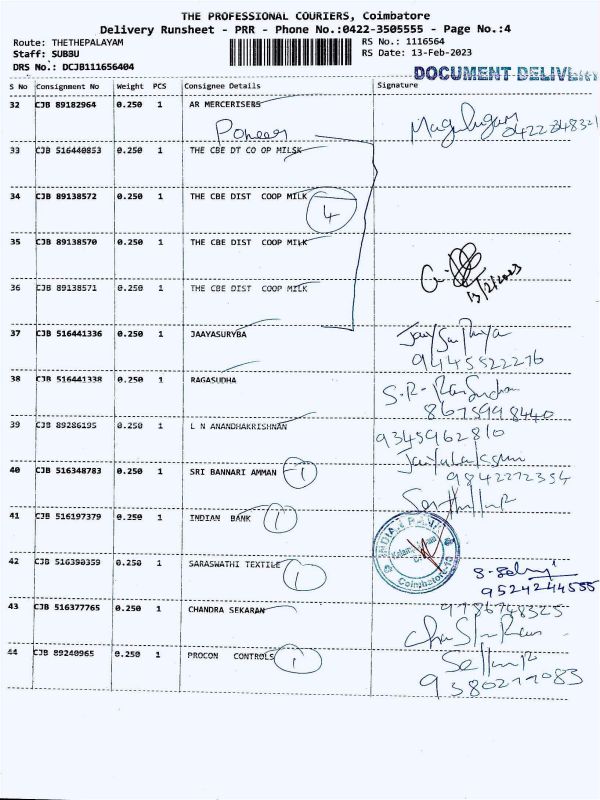 THE PROFESSIONAL COURIERS, Coimbatore
Delivery Runsheet - PRR - Phone No.:0422-3505555 - Page No.:4
Route: THETHEPALAYAM RS No.: 1116564
Staff: SUB3U RS Date: 13-Feb-2023
DRS No.: DCJB111656404
DOCUMENT DELIVERY
S No Consignment No Weight PCS Consignee Details Signature
32 CJB 89182964 0.250 1 AR MERCERISERS
33 CJB 516440853 0.250 1 THE CBE DT CO OP MILSK
34 CJB 89138572 0.250 1 THE CBE DIST COOP MILK
4
35 CJB 89138570 0.250 1 THE CBE DIST COOP MILK
36 CJB 89138571 0.250 1 THE CBE DIST COOP MILK
13/2/2023
37 CJB 516441336 0.250 1 JAAYASURYBA
9445522276
38 CJB 516441338 0.250 1 RAGASUDHA
8675998440
39 CJB 89286195 0.250 1 L N ANANDHAKRISHNAN
9345962810
40 CJB 516348783 0.250 1 SRI BANNARI AMMAN 1
9842272354
41 CJB 516197379 0.250 1 INDIAN BANK 1
INDIAN BANK
Coimbatore
42 CJB 516390359 0.250 1 SARASWATHI TEXTILE 1
9524244555
43 CJB 516377765 0.250 1 CHANDRA SEKARAN
9786748325
44 CJB 89240965 0.250 1 PROCON CONTROLS 1
9380277083